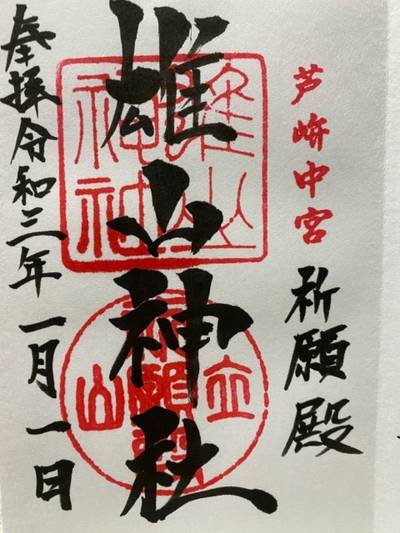 芦峅中宮
祈願殿
雄山神社
奉拝令和三年一月一日
雄山
神社
立山
祈願殿